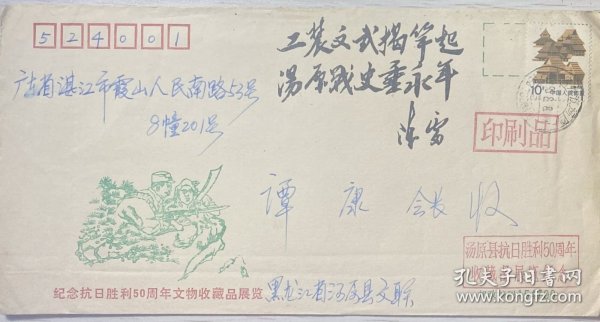 524001
工农文武揭竿起
汤原战史垂永年
陈雷
广东省湛江市霞山人民南路53号
8幢201号
10分
中国人民邮政
印刷品
谭康 会长 收
汤原县抗日胜利50周年
纪念抗日胜利50周年文物收藏品展览
黑龙江省汤原县文联
孔夫子旧书网
www.kongfz.com